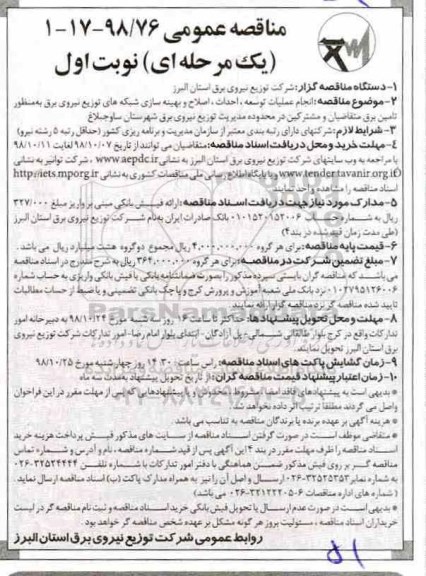 مناقصه عمومی ۹۸/۷۶-۱۷-۱
(یک مرحله ای) نوبت اول
۱-دستگاه مناقصه گزار: شرکت توزیع نیروی برق استان البرز
۲-موضوع مناقصه: انجام عملیات توسعه ، احداث ، اصلاح و بهینه سازی شبکه های توزیع نیروی برق به‌منظور
تامین برق متقاضیان و مشترکین در محدوده مدیریت توزیع نیروی برق شهرستان ساوجبلاغ
۳-شرایط لازم: شرکتهای دارای رتبه بندی معتبر از سازمان مدیریت و برنامه ریزی کشور (حداقل رتبه ۵ رشته نیرو)
۴-مهلت خرید و محل دریافت اسناد مناقصه: متقاضیان می توانند از تاریخ ۹۸/۱۰/۰۷ لغایت ۹۸/۱۰/۱۱
با مراجعه به وب سایتهای شرکت توزیع نیروی برق استان البرز به نشانی www.aepdc.ir ، شرکت توانیر به نشانی
www.tender.tavanir.org.ir و یا پایگاه اطلاع رسانی ملی مناقصات کشوری به نشانی http://iets.mporg.ir
اسناد مناقصه را مشاهده و اخذ نمایند.
۵-مدارک مورد نیاز جهت دریافت اسناد مناقصه: ارائه فیش بانکی مبنی بر واریز مبلغ ۳۲۷/۰۰۰
ریال به شماره حساب ۰۱۰۱۵۲۰۱۵۲۰۰۶ بانک صادرات ایران به‌نام شرکت توزیع نیروی برق استان البرز
(طی مدت زمان قید شده در بند۴)
۶-قیمت پایه مناقصه: برای هر گروه ۴,۰۰۰,۰۰۰,۰۰۰ ریال مجموع دوگروه هشت میلیارد ریال می باشد .
۷-مبلغ تضمین شرکت در مناقصه: برای هر گروه ۲۶۴,۰۰۰,۰۰۰ ریال به شرح مندرج در اسناد مناقصه
می باشد که مناقصه گران بایستی سپرده مذکور را بصورت ضمانتنامه بانکی یا فیش بانکی واریزی به حساب شماره
۰۱۰۲۷۹۵۱۲۶۰۰۶ نزد بانک ملی شعبه آموزش و پرورش کرج و یا چک بانکی تضمینی و یا ضبط از حساب مطالبات
تایید شده مناقصه گر نزد مناقصه گزار ارائه نمایند.
۸-مهلت و محل تحویل پیشنهادها: حداکثر تا ساعت روز سه شنبه مورخ ۹۸/۱۰/۲۴ به دبیرخانه امور
تدارکات واقع در کرج بلوار طالقانی شمالی- پل آزادگان - ابتدای بلوار امام رضا- امور تدارکات شرکت توزیع نیروی
برق استان البرز تحویل نمایند.
۹-زمان گشایش پاکت های اسناد مناقصه: راس ساعت ۱۴:۳۰ روز چهارشنبه مورخ ۹۸/۱۰/۲۵
۱۰-زمان اعتبار پیشنهاد قیمت مناقصه گران: از تاریخ تحویل پیشنهاد به‌مدت سه ماه
* بدیهی است به پیشنهادهای فاقد امضا، مشروط ، مخدوش و یا پیشنهادهایی که پس از مهلت مقرر در این فراخوان
واصل می گردند مطلقا ترتیب اثر داده نخواهد شد.
* هزینه آگهی بر عهده برنده یا برندگان مناقصه به تناسب می باشد .
* متقاضی موظف است در صورت گرفتن اسناد مناقصه از سایت های مذکور فیش پرداخت هزینه خرید
اسناد مناقصه را ظرف مهلت مقرر در بند ۴ این آگهی پس از قید شماره مناقصه ، نام و آدرس و شماره تماس
مناقصه گر بر روی فیش مذکور ضمن هماهنگی با دفتر امور تدارکات با شماره تلفن ۳۲۵۲۴۴۴۴-۰۲۶
به شماره نمابر ۳۲۵۲۵۳۵۳-۰۲۶ ارسال و اصل آن را نیز به همراه مدارک پاکت (ب) اسناد مناقصه ارسال نماید.
( شماره های اداره مناقصات ۶-۳۲۱۲۲۲۰۵-۰۲۶ می باشد)
* بدیهی است در صورت عدم ارسال یا تحویل فیش بانکی خرید اسناد مناقصه و ثبت نام مناقصه گر در لیست
خریداران اسناد مناقصه ، مسئولیت بروز هر گونه مشکل بر عهده شخص مناقصه گر خواهد بود.
روابط عمومی شرکت توزیع نیروی برق استان البرز